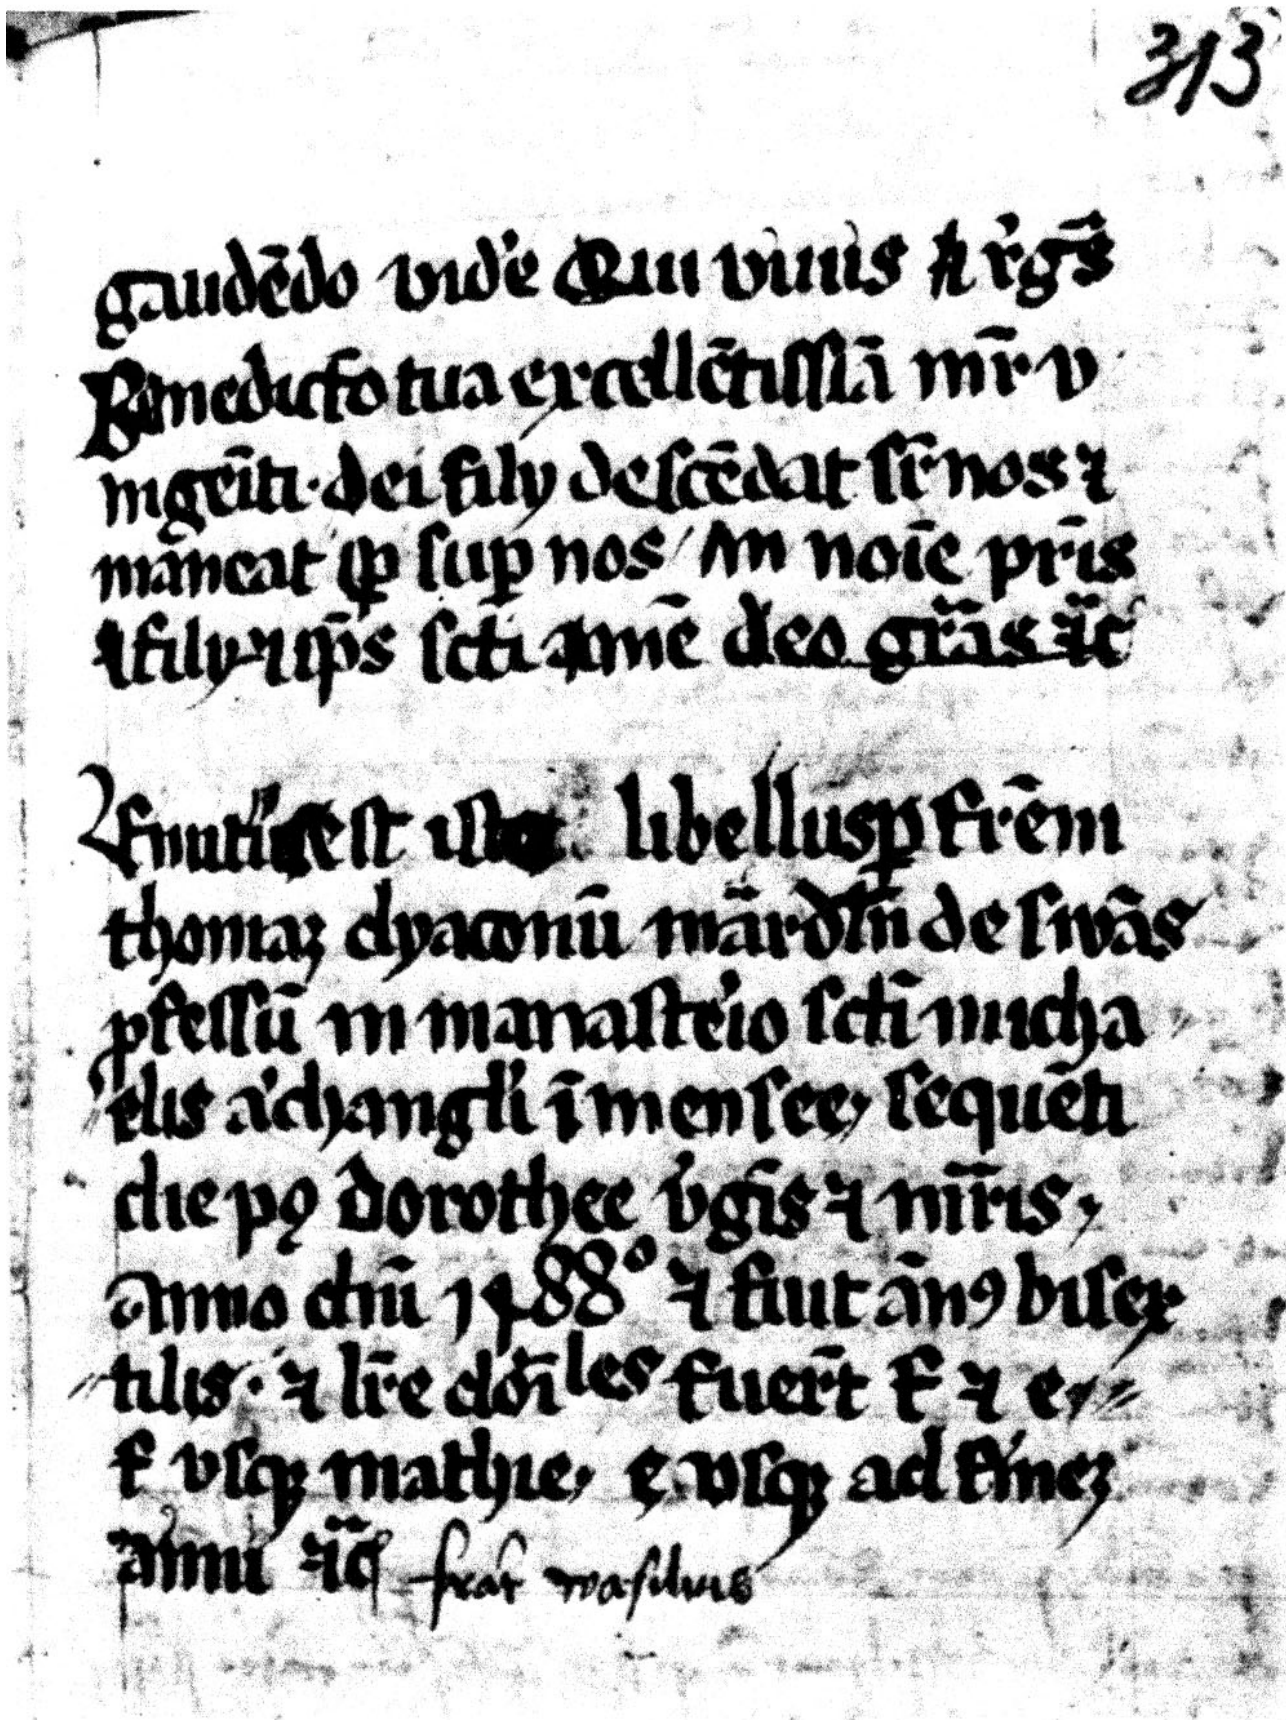 313
gaudēdo vid'e Qui viuis & r'gs̄
Benedictō tua excellētissīā mr̄ v
nigēiti · dei fily descēdat sr̄ nos ⁊
maneat sp̄ sup̄ nos / In noīe pr̄is
⁊ fily ⁊ sp̄s sct̄i amē deo gr̄as ⁊c̄
Finitū est iste libellus p̄ frēm
thomaȝ dyaconū de swās
ꝓfessū in manasterio sct̄i micha
elis archangl'i ī mensee, sequēti
die pꝰ dorothee v'gīs ⁊ mr̄is,
anno dn̄i 1488° ⁊ fuit ānꝰ bisex
tilis · ⁊ lr̄e dōīles fuer̄t f ⁊ e //
f vsqꝫ mathie, e vsqꝫ ad fineȝ
anni ⁊c̄ frat̄ wasilius